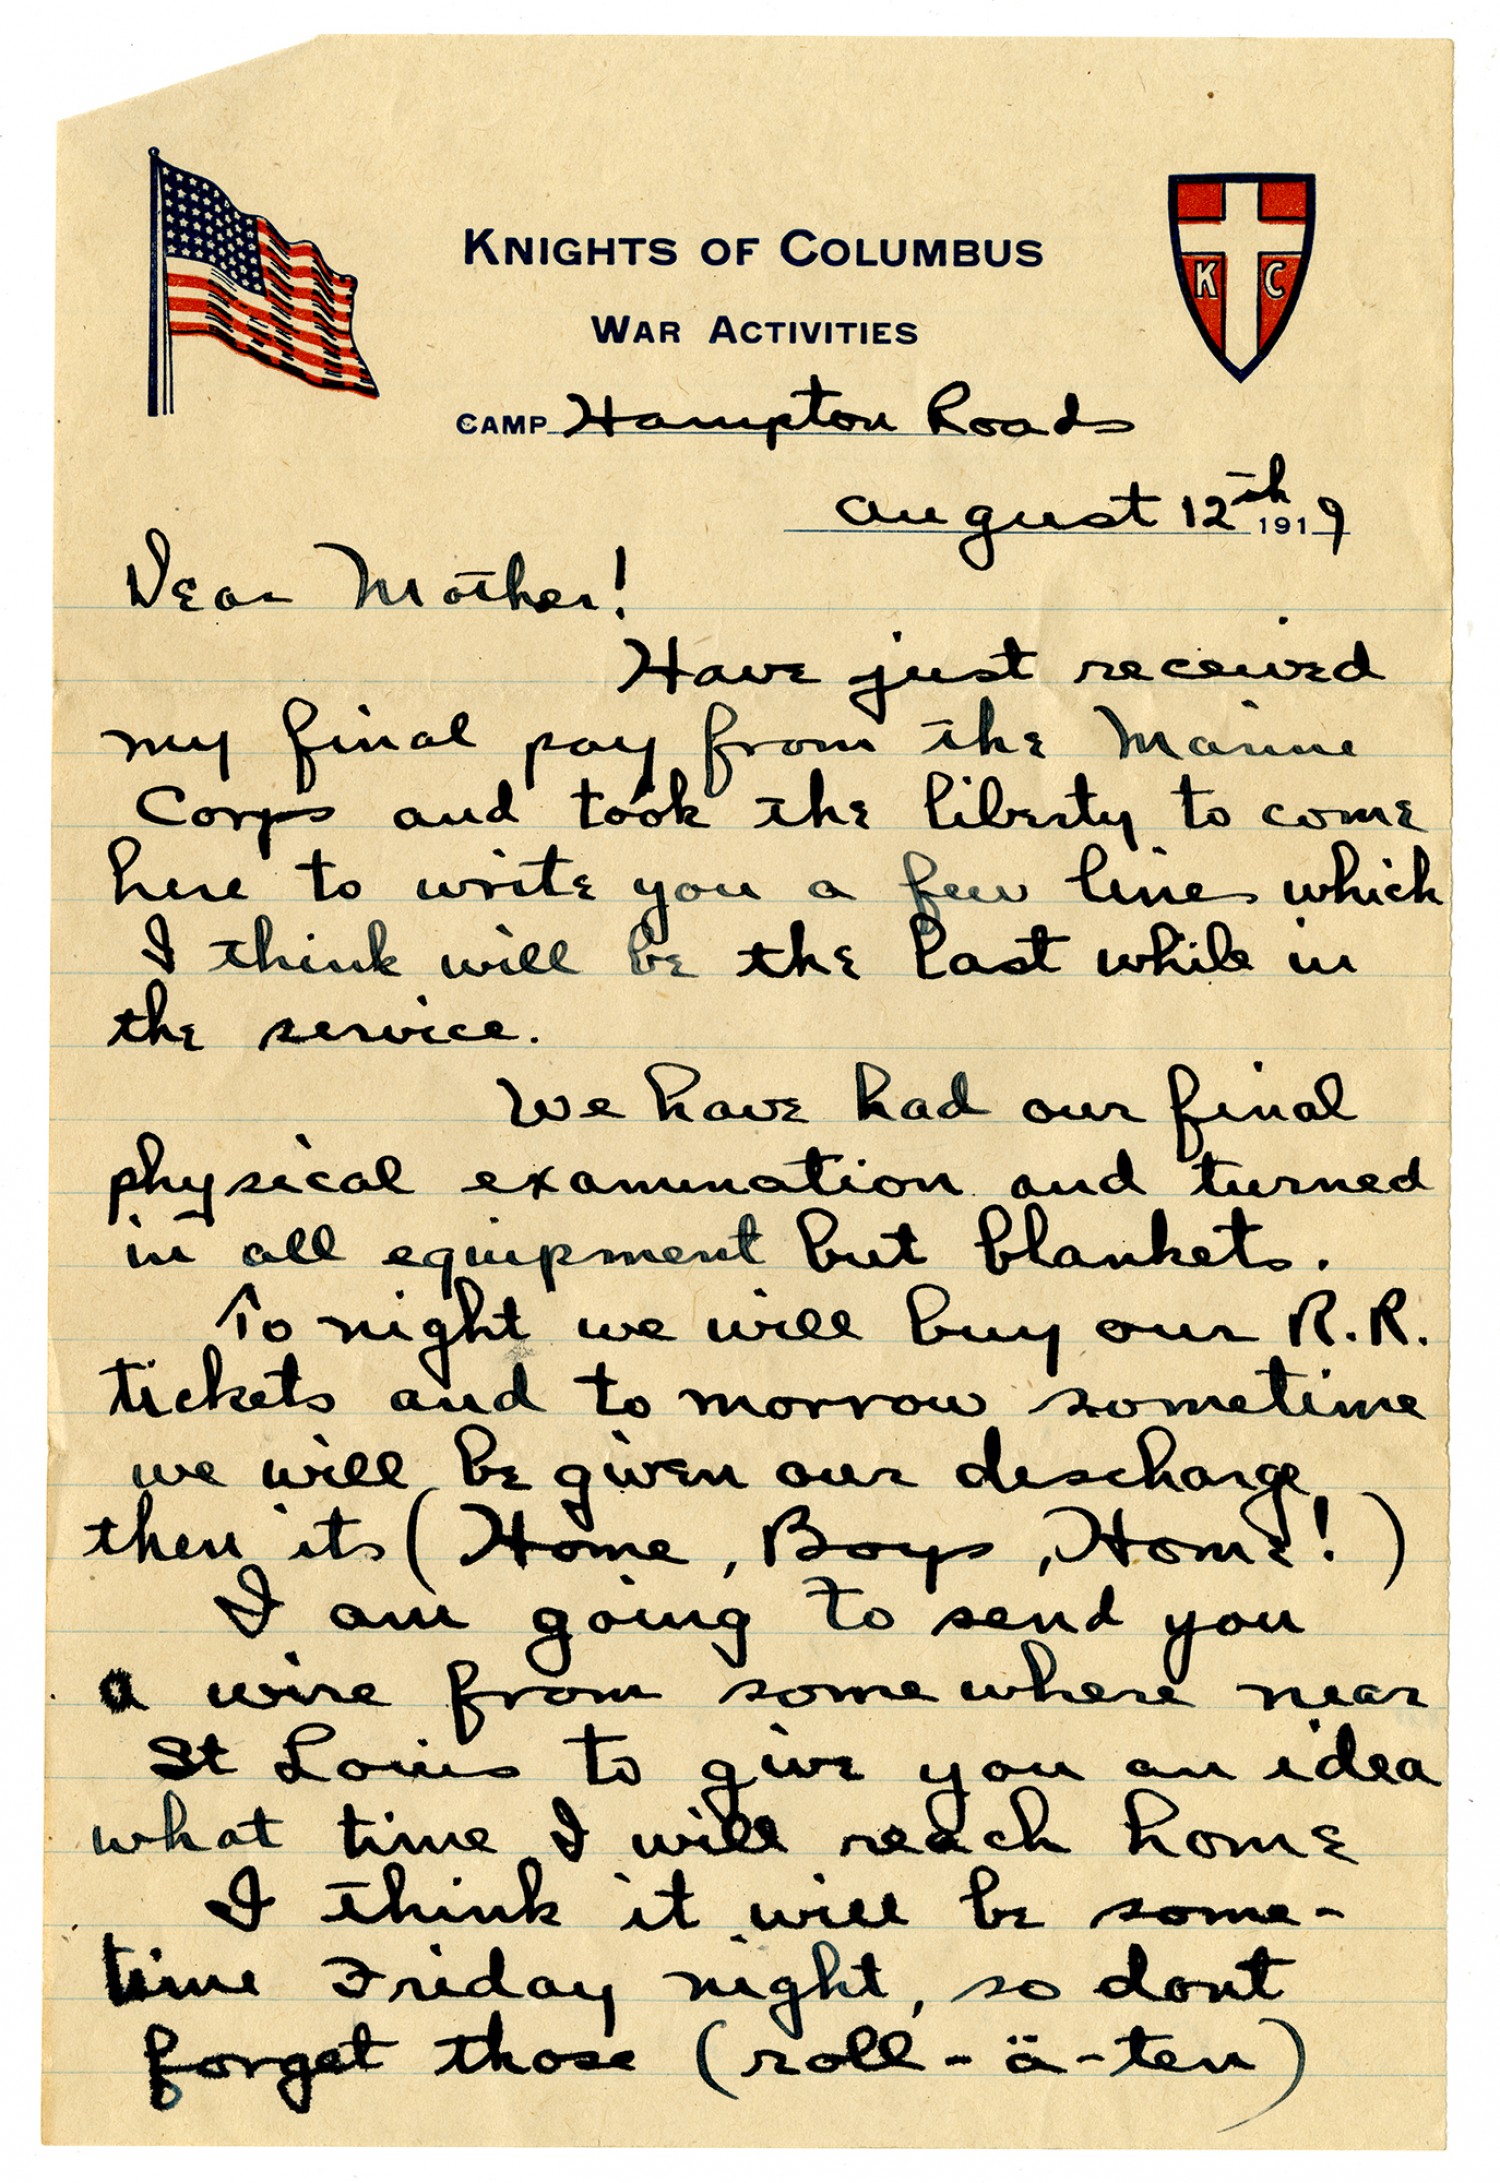 KNIGHTS OF COLUMBUS
WAR ACTIVITIES
K C
CAMP Hampton Roads
august 12th 1919
Dear Mother!
Have just received
my final pay from the Marine
Corps and took the liberty to come
here to write you a few lines which
I think will be the last while in
the service.
We have had our final
physical examination and turned
in all equipment but blankets.
To night we will buy our R.R.
tickets and to morrow sometime
we will be given our discharge
then its (Home, Boys, Home!)
I am going to send you
a wire from somewhere near
St Louis to give you an idea
what time I will reach home
I think it will be some-
time Friday night, so dont
forget those (roll-ä-ten)